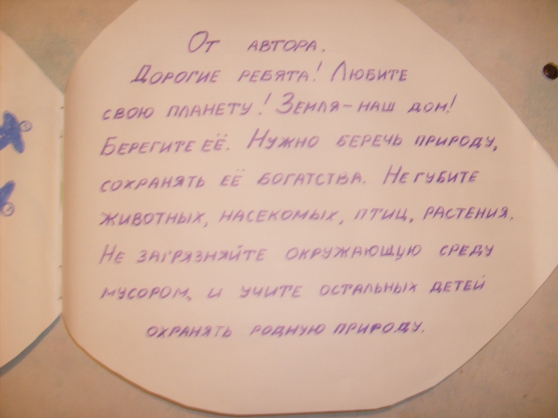 От автора.
Дорогие ребята! Любите
свою планету! Земля - наш дом!
Берегите её. Нужно беречь природу,
сохранять её богатства. Не губите
животных, насекомых, птиц, растения.
Не загрязняйте окружающую среду
мусором, и учите остальных детей
охранять родную природу.